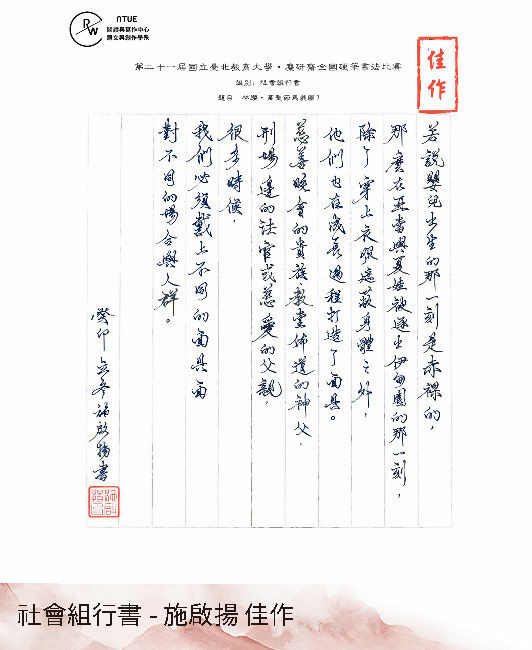 NTUE
閱讀與寫作中心
語文與創作學系
第二十一屆國立臺北教育大學・麋研齋全國硬筆書法比賽
組別：社會組行書
佳作
若說嬰兒出生的那一刻是赤裸的，
那麼在亞當與夏娃被逐出伊甸園的那一刻，
除了穿上衣服遮蔽身體之外，
他們也在成長過程打造了面具。
慈善晚會的貴族、教堂佈道的神父、
刑場邊的法官或慈愛的父親，
很多時候，
我們必須戴上不同的面具面
對不同的場合與人群。
癸卯立冬施啟揚書
社會組行書 - 施啟揚 佳作